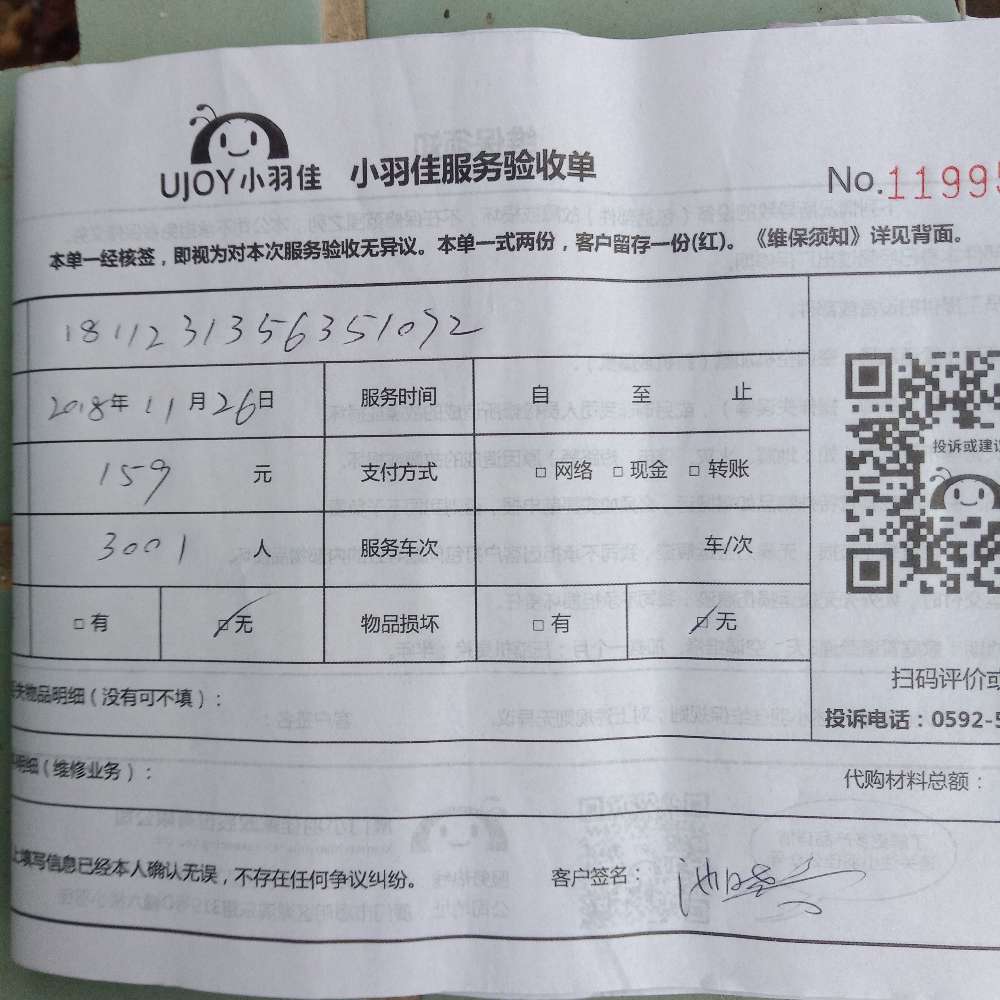 UJOY小羽佳 小羽佳服务验收单
No.11995
本单一经核签，即视为对本次服务验收无异议。本单一式两份，客户留存一份(红)。《维保须知》详见背面。
1811231356351092
2018年 11 月 26日 服务时间 自 至 止
159 元 支付方式 □ 网络 □ 现金 □ 转账
3001 人 服务车次 车/次
□ 有 □无 物品损坏 □ 有 □ 无
投诉或建议
失物品明细（没有可不填）：
扫码评价或
投诉电话：0592-5
明细（维修业务）：
代购材料总额：
上填写信息已经本人确认无误，不存在任何争议纠纷。
客户签名：